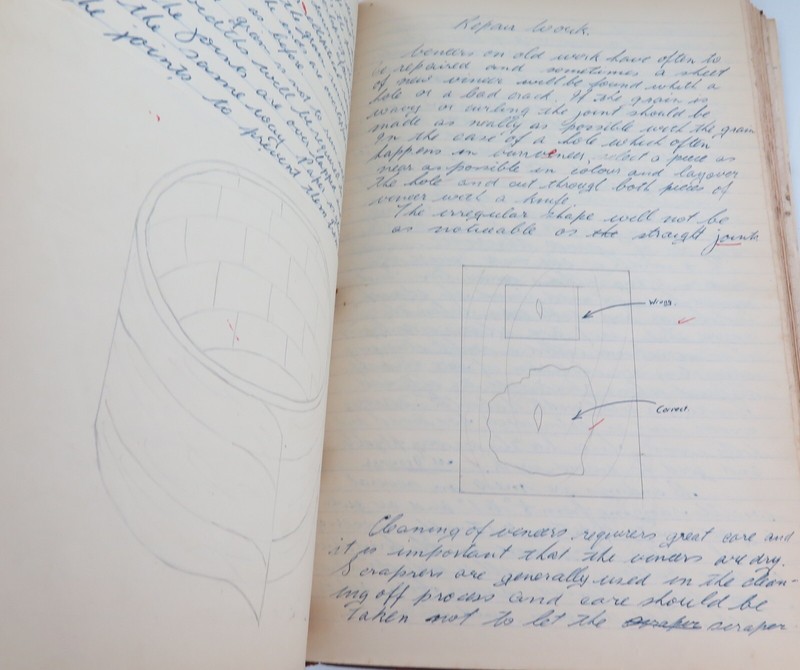 the grain
as before.
grain is not to
widths will be required
the joins are overlapped
the same way. Paper
the joints to prevent them
Repair Work.
Veneers on old work have often to
be repaired and sometimes a sheet
of new veneer will be found with a
hole or a bad crack. If the grain is
wavy or curling the joint should be
made as wally as possible with the grain
In the case of a hole which often
happens in burr veneer, select a piece as
near as possible in colour and lay over
the hole and cut through both pieces of
veneer with a knife.
The irregular shape will not be
as noticeable as the straight joint.
Wrong.
Correct.
Cleaning of veneers requires great care and
it is important that the veneers are dry.
Scrapers are generally used in the clean-
ing off process and care should be
taken not to let the scraper